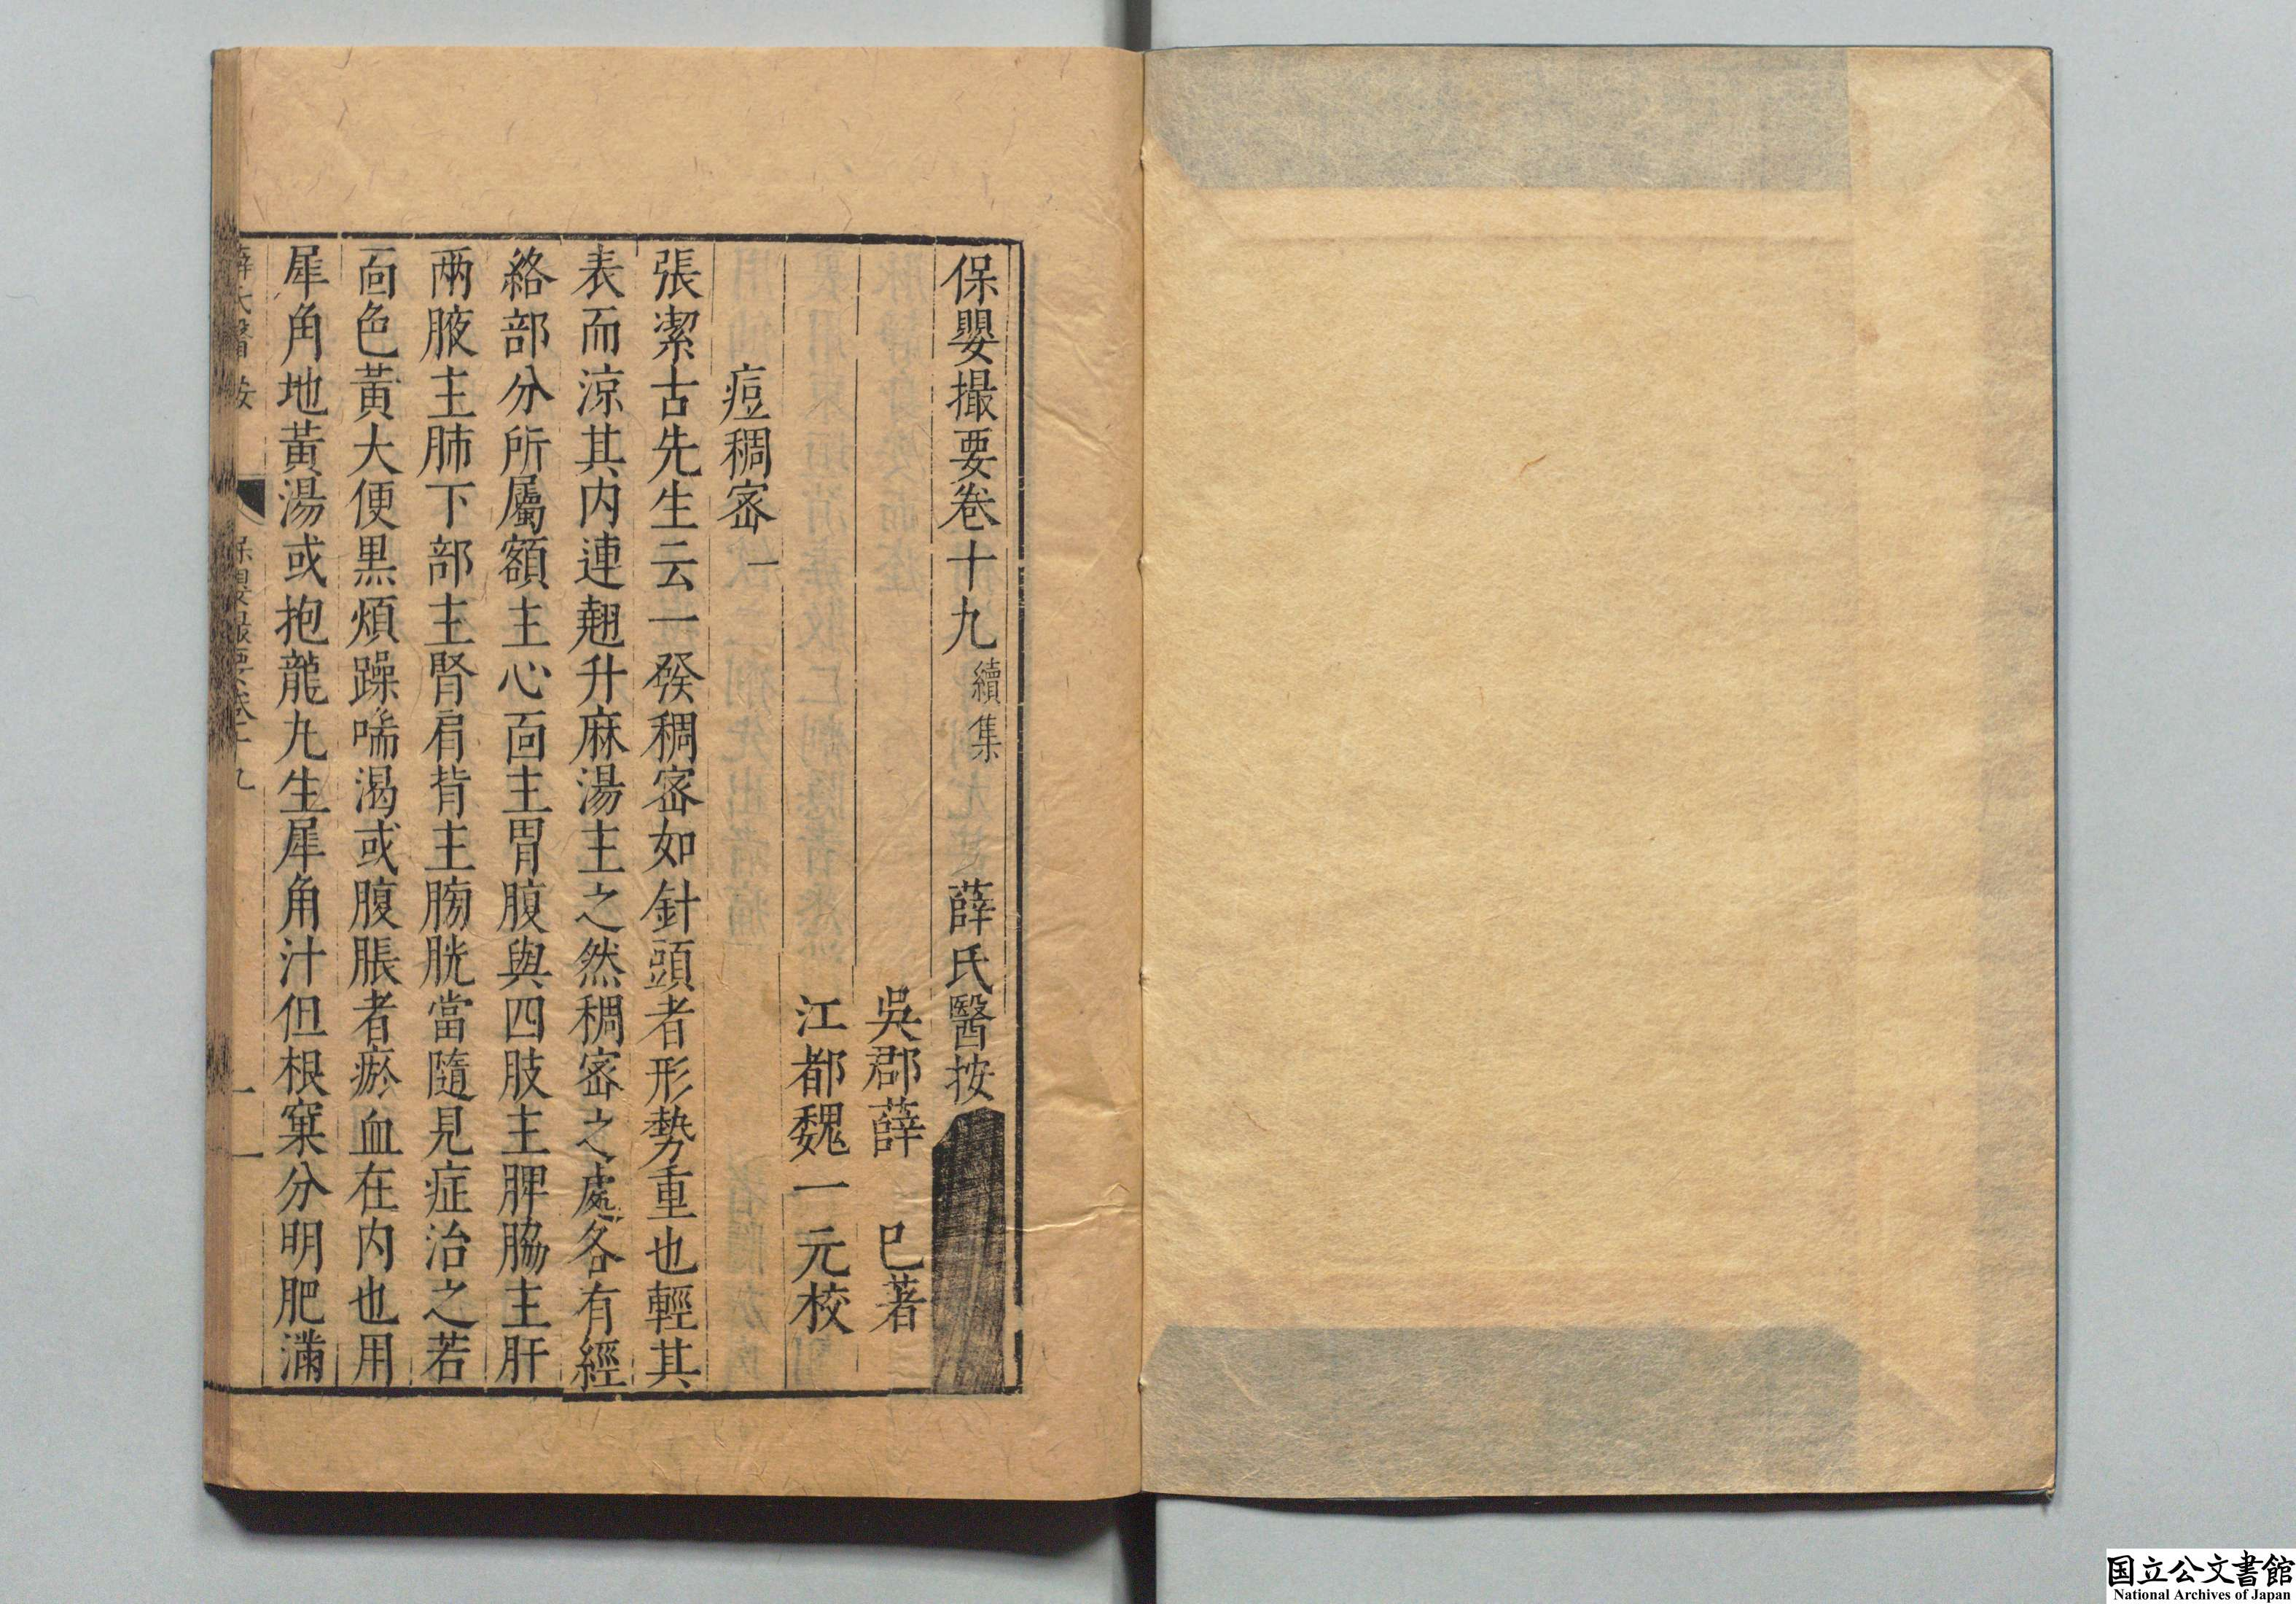 保嬰撮要卷十九 續集 薛氏醫按
吳郡薛 已著
江都魏一元校
痘稠密一
張潔古先生云一發稠密如針頭者形勢重也輕其
表而涼其内連翹升麻湯主之然稠密之處各有經
絡部分所屬額主心面主胃腹與四肢主脾脇主肝
兩腋主肺下部主腎肩背主膀胱當隨見症治之若
面色黃大便黒煩躁喘渴或腹脹者瘀血在内也用
犀角地黃湯或抱龍丸生犀角汁但根窠分明肥滿
薛氏醫按 保嬰撮要卷十九 一
国立公文書館
National Archives of Japan